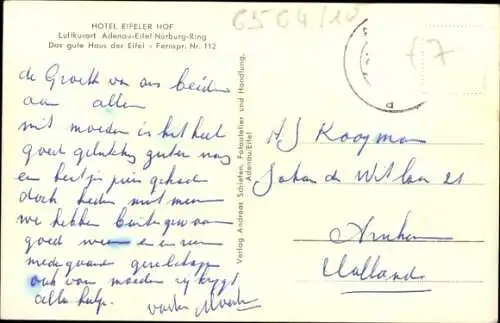 HOTEL EIFELER HOF
Luftkurort Adenau-Eifel Nürburg-Ring
Das gute Haus der Eifel - Fernspr. Nr. 112
6564/18
17
de Groeten van ons beiden
aan allen
met moeder is het heel
goed gelukt, gister nog
een beetje pijn gehad
doch heden niet meer
we hebben buitengewoon
goed weer en een
medegaand gezelschap
ook van moeder krijgt
alle hulp.
Verlag Andreas Schiefen, Fotoatelier und Handlung,
Adenau/Eifel
HJ Kooyman
Johan de Witlaan 21
Arnhem
Holland